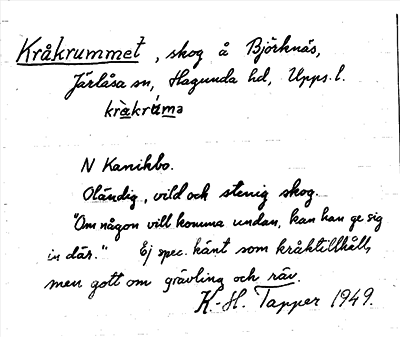 Kråkrummet, skog å Björknäs,
Järlåsa sn, Hagunda hd, Upps. l.
kràkrúma
N Kanikbo.
Oländig, vild och stenig skog.
"Om någon vill komma undan, kan han ge sig
in där." Ej spec. känt som kråktillhåll,
men gott om grävling och räv.
K.-H. Tapper 1949.